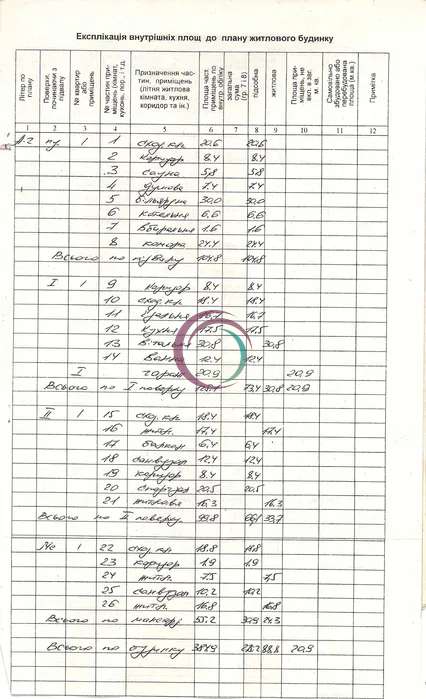 Експлікація внутрішніх площ до плану житлового будинку
Літер по плану
Поверхи, починаючи з підвалу
№ квартир або приміщень
№ частин приміщень (кімнат, кухонь, кор., і т.д.
Призначення частин, приміщень (літня житлова кімната, кухня, коридор та ін.)
Площа част. приміщень по внутр. обліку
загальна сума (гр. 7 і 8)
підсобна
житлова
Площа при-міщень, не вкл. в заг. м. кв.
Самовільно збудовано або перебудована площа (м.кв.)
Примітка
1 2 3 4 5 6 7 8 9 10 11 12
1 1 сход. кл. 20,6 20,6
2 коридор 8.4 8.4
3 сауна 5,8 5,8
4 7.4 7.4
5 більярдна 30,0 30,0
6 котельня 6,6 6,6
7 вбиральня 1.6 1.6
8 комора 24.4 24.4
Всього по 104,8 104,8
I 1 9 коридор 8,4 8,4
10 сход. кл. 18.4 18.4
11 їдальня
12 кухня 17,5 17,5
13 вітальня 30,8 30,8
14 12,4 12,4
I гараж 20,9 20,9
Всього по I поверху 73,4 30,8 20,9
II 1 15 сход. кл. 18.4 18.4
16 житл. 17,4 17,4
17 балкон 6,4 6,4
18 санвузол 12,4 12,4
19 коридор 8.4 8.4
20 20,5 20,5
21 16,3 16.3
Всього по II поверху 99,8 33,7
1 22 сход. кл. 18.8 18.8
23 коридор 1,9 1.9
24 житл. 7.5 7,5
25 санвузол 10,2 10,2
26 житл. 16,8 16,8
Всього по 55.2 30,9 24.3
Всього по будинку 88,8 20,9